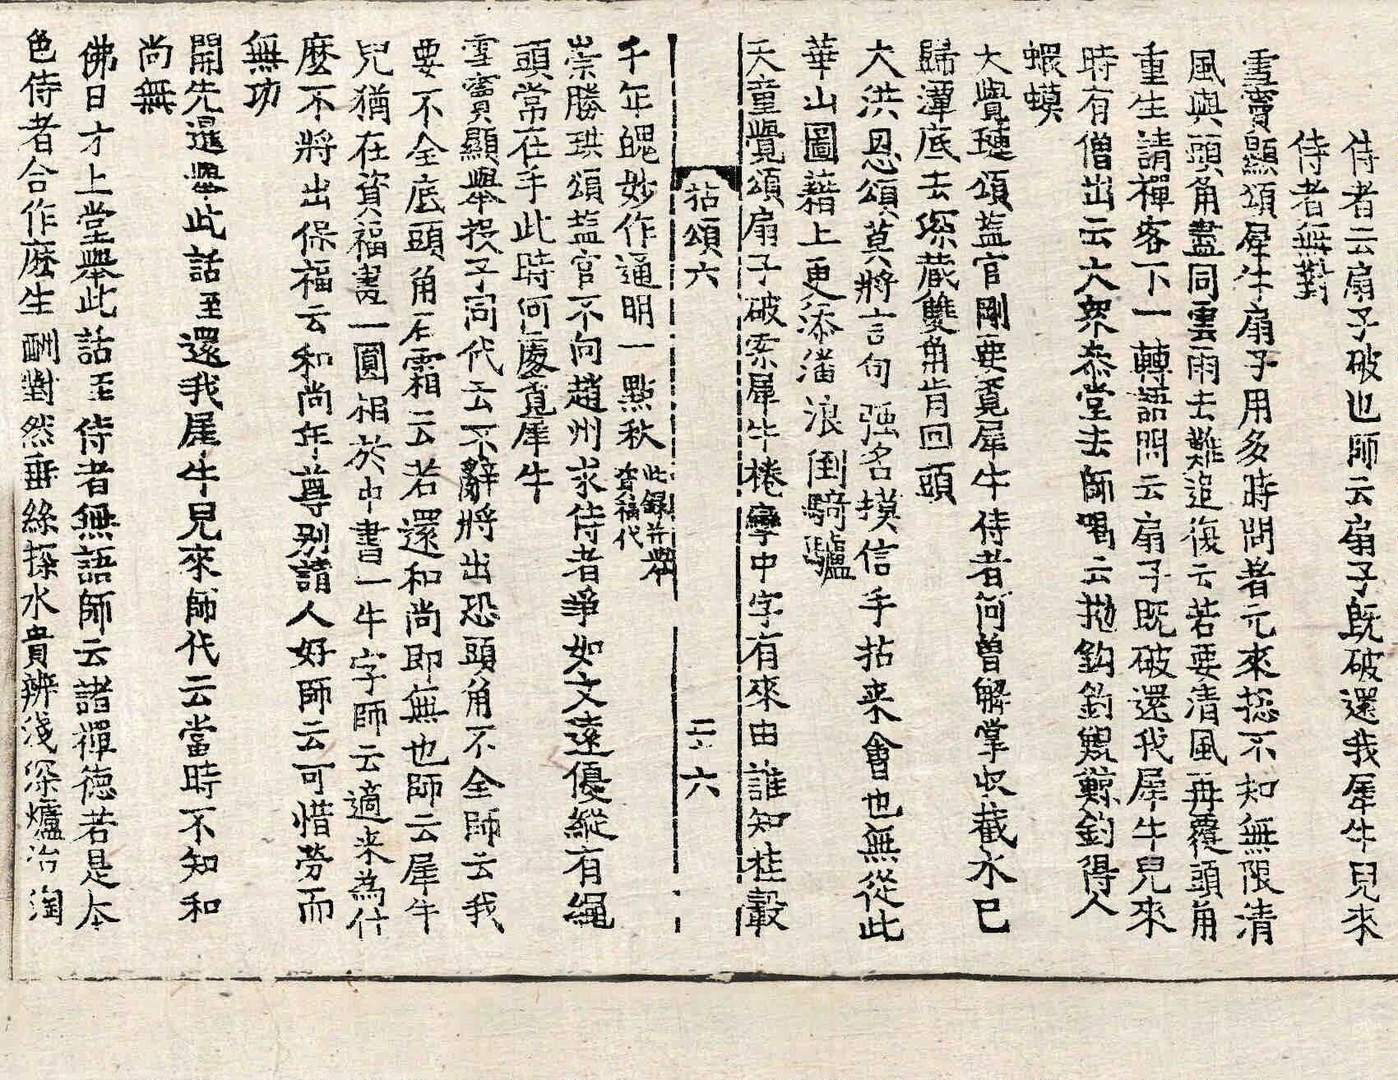 侍者云扇子破也師云扇子旣破還我犀牛兒來
侍者無對
雪竇顯頌犀牛扇子用多時問著元來揔不知無限清
風與頭角盡同雲雨去難追復云若要清風再覆頭角
重生請禪客下一轉語問云扇子旣破還我犀牛兒來
時有僧出云大衆叅堂去師喝云抛鈎釣鯤鯨釣得个
蝦蟆
大覺璉頌盖官剛要覓犀牛侍者何曾解掌收截水已
歸潭底去深藏雙角肯回頭
大洪恩頌莫將言句强名摸信手拈来會也無從此
華山圖籍上更添潘浪倒騎驢
天童覺頌扇子破索犀牛棬攣中字有來由誰知桂轂
拈頌六
二六
千年魄妙作通明一點秋此録并舉資福代
崇勝珙頌盐官不向趙州求侍者爭如文遠優縱有繩
頭常在手此時何處覓犀牛
雪竇顯舉投子同代云不辭將出恐頭角不全師云我
要不全底頭角石霜云若還和尚即無也師云犀牛
兒猶在資福畫一圓相於中書一牛字師云適来為什
麽不將出保福云和尚年尊别請人好師云可惜勞而
無功
開先暹舉此話至還我犀牛兒來師代云當時不知和
尚無
佛日才上堂舉此話至侍者無語師云諸禪德若是夲
色侍者合作麽生酬對然垂絲探水貴辨淺深爐冶淘